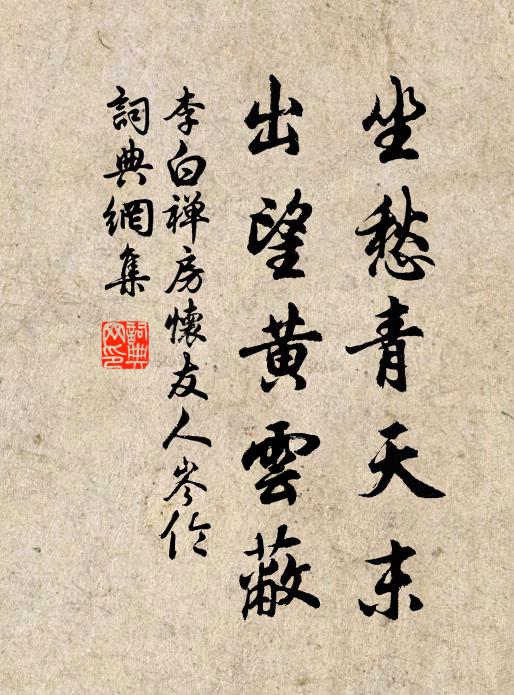 坐愁青天末
出望黃雲蔽
李白禅房懷友人岑倫
詞典網集
詞典
网印